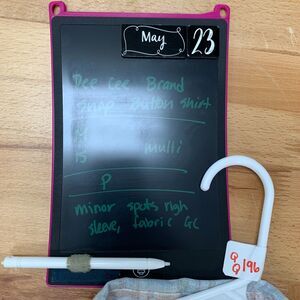 May 23
Dee Cee Brand
snap button shirt
multi
P
minor spots righ
sleeve, fabric GC
QQ196